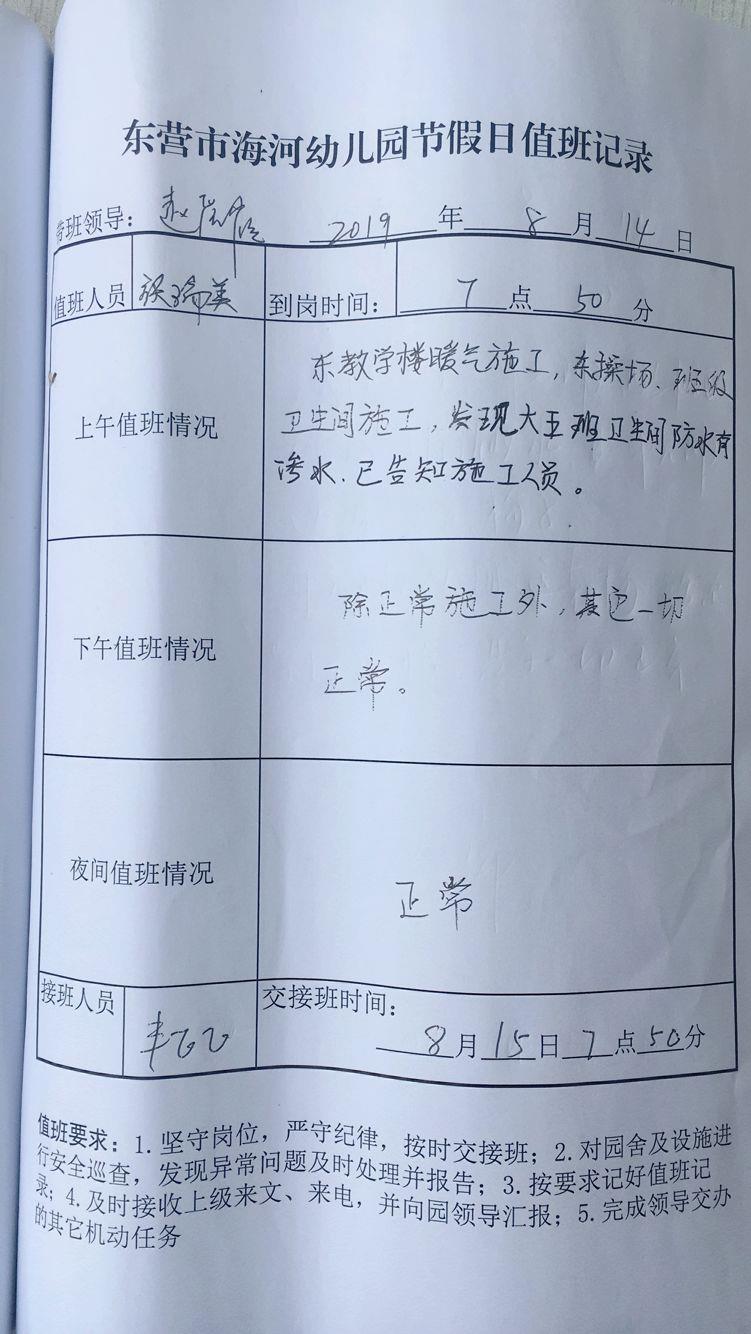 东营市海河幼儿园节假日值班记录
带班领导：赵 2019 年 8 月 14 日
值班人员 张瑞美 到岗时间： 7 点 50 分
上午值班情况
东教学楼暖气施工，东操场、班级
卫生间施工，发现大五班卫生间防水有
渗水、已告知施工人员。
下午值班情况
除正常施工外，其它一切
正常。
夜间值班情况
正常
接班人员 交接班时间：
8 月 15 日 7 点 50 分
值班要求：1. 坚守岗位，严守纪律，按时交接班；2. 对园舍及设施进
行安全巡查，发现异常问题及时处理并报告；3. 按要求记好值班记
录；4. 及时接收上级来文、来电，并向园领导汇报；5. 完成领导交办
的其它机动任务